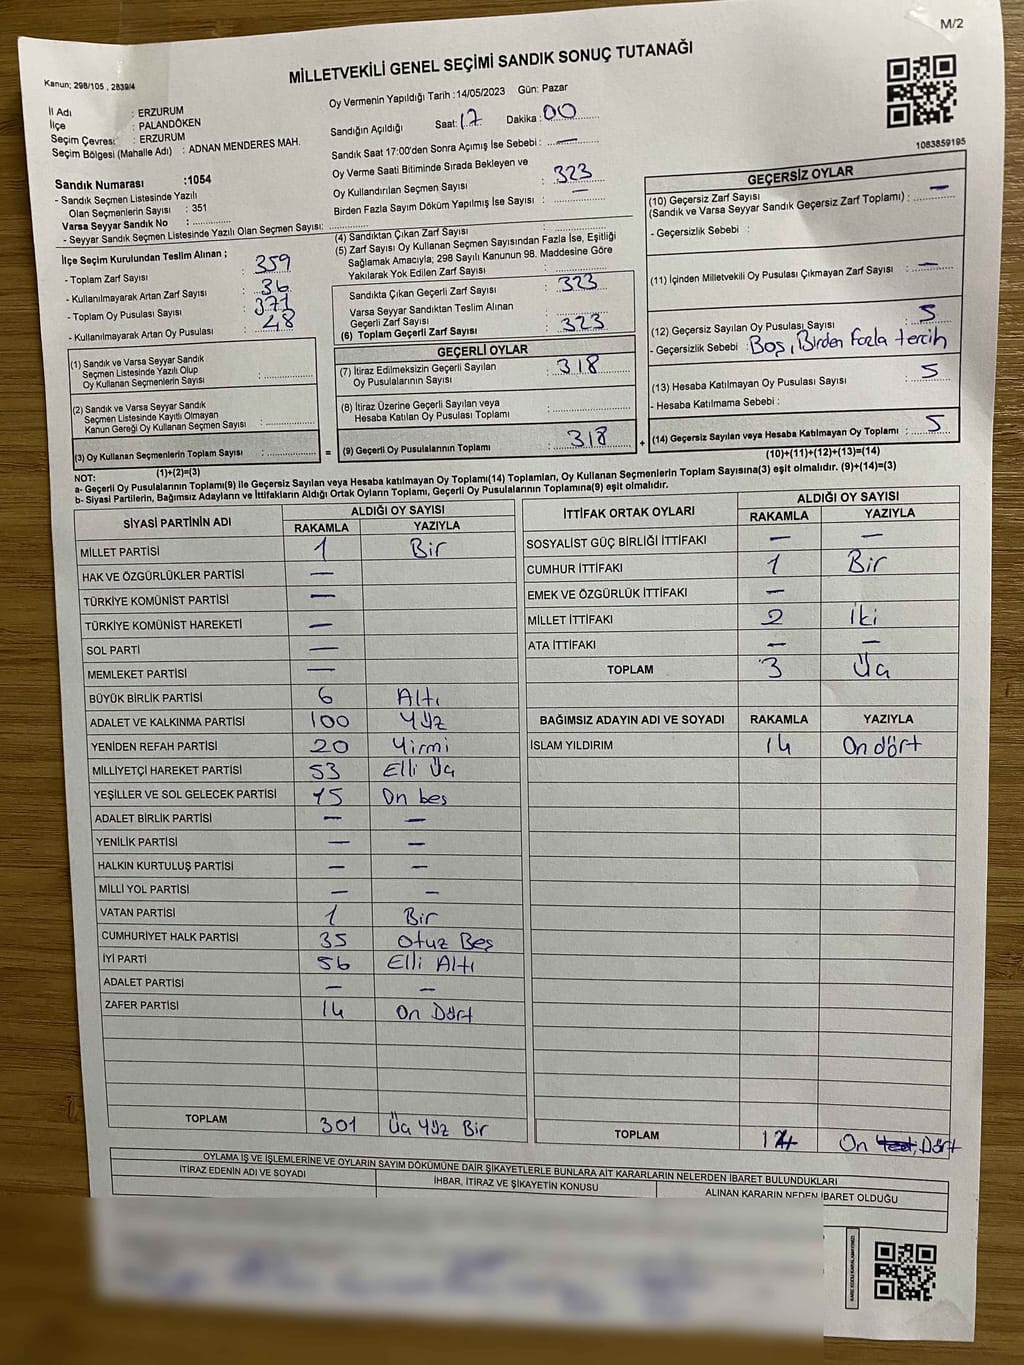 M/2
MİLLETVEKİLİ GENEL SEÇİMİ SANDIK SONUÇ TUTANAĞI
Kanun; 298/105 , 2839/4
İl Adı : ERZURUM
İlçe : PALANDÖKEN
Seçim Çevresi : ERZURUM
Seçim Bölgesi (Mahalle Adı) : ADNAN MENDERES MAH.
Oy Vermenin Yapıldığı Tarih :14/05/2023 Gün: Pazar
Sandığın Açıldığı Saat: 17 Dakika: 00
Sandık Saat 17:00'den Sonra Açımış İse Sebebi : —
Oy Verme Saati Bitiminde Sırada Bekleyen ve
Oy Kullandırılan Seçmen Sayısı : 323
Birden Fazla Sayım Döküm Yapılmış İse Sayısı : —
1083859195
Sandık Numarası :1054
- Sandık Seçmen Listesinde Yazılı
Olan Seçmenlerin Sayısı : 351
Varsa Seyyar Sandık No :
- Seyyar Sandık Seçmen Listesinde Yazılı Olan Seçmen Sayısı:
İlçe Seçim Kurulundan Teslim Alınan ;
- Toplam Zarf Sayısı : 359
- Kullanılmayarak Artan Zarf Sayısı : 36
- Toplam Oy Pusulası Sayısı : 371
- Kullanılmayarak Artan Oy Pusulası : 48
(1) Sandık ve Varsa Seyyar Sandık
Seçmen Listesinde Yazılı Olup
Oy Kullanan Seçmenlerin Sayısı :
(2) Sandık ve Varsa Seyyar Sandık
Seçmen Listesinde Kayıtlı Olmayan
Kanun Gereği Oy Kullanan Seçmen Sayısı :
(3) Oy Kullanan Seçmenlerin Toplam Sayısı :
(1)+(2)=(3)
(4) Sandıktan Çıkan Zarf Sayısı :
(5) Zarf Sayısı Oy Kullanan Seçmen Sayısından Fazla İse, Eşitliği
Sağlamak Amacıyla; 298 Sayılı Kanunun 98. Maddesine Göre
Yakılarak Yok Edilen Zarf Sayısı :
Sandıkta Çıkan Geçerli Zarf Sayısı : 323
Varsa Seyyar Sandıktan Teslim Alınan
Geçerli Zarf Sayısı :
(6) Toplam Geçerli Zarf Sayısı : 323
GEÇERLİ OYLAR
(7) İtiraz Edilmeksizin Geçerli Sayılan
Oy Pusulalarının Sayısı : 318
(8) İtiraz Üzerine Geçerli Sayılan veya
Hesaba Katılan Oy Pusulası Toplamı :
= (9) Geçerli Oy Pusulalarının Toplamı : 318 +
GEÇERSİZ OYLAR
(10) Geçersiz Zarf Sayısı
(Sandık ve Varsa Seyyar Sandık Geçersiz Zarf Toplamı) : —
- Geçersizlik Sebebi :
(11) İçinden Milletvekili Oy Pusulası Çıkmayan Zarf Sayısı : —
(12) Geçersiz Sayılan Oy Pusulası Sayısı : 5
- Geçersizlik Sebebi : Boş, Birden Fazla tercih
(13) Hesaba Katılmayan Oy Pusulası Sayısı : 5
- Hesaba Katılmama Sebebi :
(14) Geçersiz Sayılan veya Hesaba Katılmayan Oy Toplamı : 5
(10)+(11)+(12)+(13)=(14)
NOT:
a- Geçerli Oy Pusulalarının Toplamı(9) ile Geçersiz Sayılan veya Hesaba katılmayan Oy Toplamı(14) Toplamları, Oy Kullanan Seçmenlerin Toplam Sayısına(3) eşit olmalıdır. (9)+(14)=(3)
b- Siyasi Partilerin, Bağımsız Adayların ve İttifakların Aldığı Ortak Oyların Toplamı, Geçerli Oy Pusulalarının Toplamına(9) eşit olmalıdır.
SİYASİ PARTİNİN ADI
ALDIĞI OY SAYISI
RAKAMLA YAZIYLA
MİLLET PARTİSİ 1 Bir
HAK VE ÖZGÜRLÜKLER PARTİSİ —
TÜRKİYE KOMÜNİST PARTİSİ —
TÜRKİYE KOMÜNİST HAREKETİ —
SOL PARTİ —
MEMLEKET PARTİSİ —
BÜYÜK BİRLİK PARTİSİ 6 Altı
ADALET VE KALKINMA PARTİSİ 100 Yüz
YENİDEN REFAH PARTİSİ 20 Yirmi
MİLLİYETÇİ HAREKET PARTİSİ 53 Elli Üç
YEŞİLLER VE SOL GELECEK PARTİSİ 15 On beş
ADALET BİRLİK PARTİSİ — —
YENİLİK PARTİSİ — —
HALKIN KURTULUŞ PARTİSİ — —
MİLLİ YOL PARTİSİ — —
VATAN PARTİSİ 1 Bir
CUMHURİYET HALK PARTİSİ 35 Otuz Beş
İYİ PARTİ 56 Elli Altı
ADALET PARTİSİ — —
ZAFER PARTİSİ 14 On Dört
TOPLAM 301 Üç Yüz Bir
İTTİFAK ORTAK OYLARI
ALDIĞI OY SAYISI
RAKAMLA YAZIYLA
SOSYALİST GÜÇ BİRLİĞİ İTTİFAKI — —
CUMHUR İTTİFAKI 1 Bir
EMEK VE ÖZGÜRLÜK İTTİFAKI —
MİLLET İTTİFAKI 2 İki
ATA İTTİFAKI — —
TOPLAM 3 Üç
BAĞIMSIZ ADAYIN ADI VE SOYADI RAKAMLA YAZIYLA
İSLAM YILDIRIM 14 On dört
TOPLAM 14 On Dört
OYLAMA İŞ VE İŞLEMLERİNE VE OYLARIN SAYIM DÖKÜMÜNE DAİR ŞİKAYETLERLE BUNLARA AİT KARARLARIN NELERDEN İBARET BULUNDUKLARI
İTİRAZ EDENİN ADI VE SOYADI
İHBAR, İTİRAZ VE ŞİKAYETİN KONUSU
ALINAN KARARIN NEDEN İBARET OLDUĞU